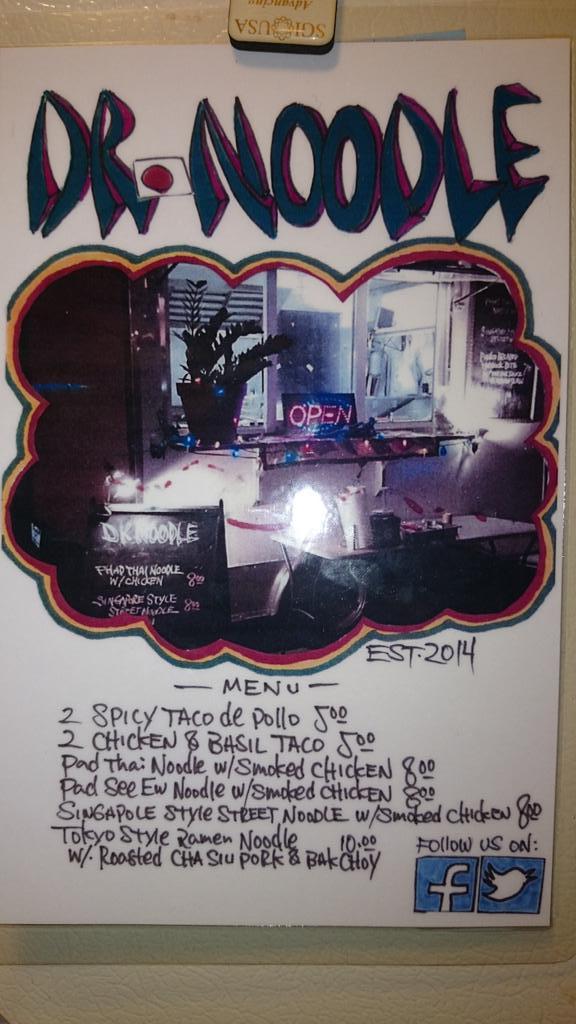 SGI USA
Advancing
DR. NOODLE
OPEN
DR. NOODLE
PHAD THAI NOODLE
W/ CHICKEN 8.00
SINGAPORE STYLE
STREET NOODLE 8.00
EST. 2014
— MENU —
2 SPICY TACO de POLLO 5.00
2 CHICKEN & BASIL TACO 5.00
Pad Thai Noodle w/Smoked CHICKEN 8.00
Pad See Ew Noodle w/Smoked CHICKEN 8.00
SINGAPOLE STYLE STREET NOODLE w/Smoked CHICKEN 8.00
Tokyo Style Ramen Noodle 10.00
w/. Roasted CHA SIU PORK & BAK CHOY
FOLLOW US ON:
f